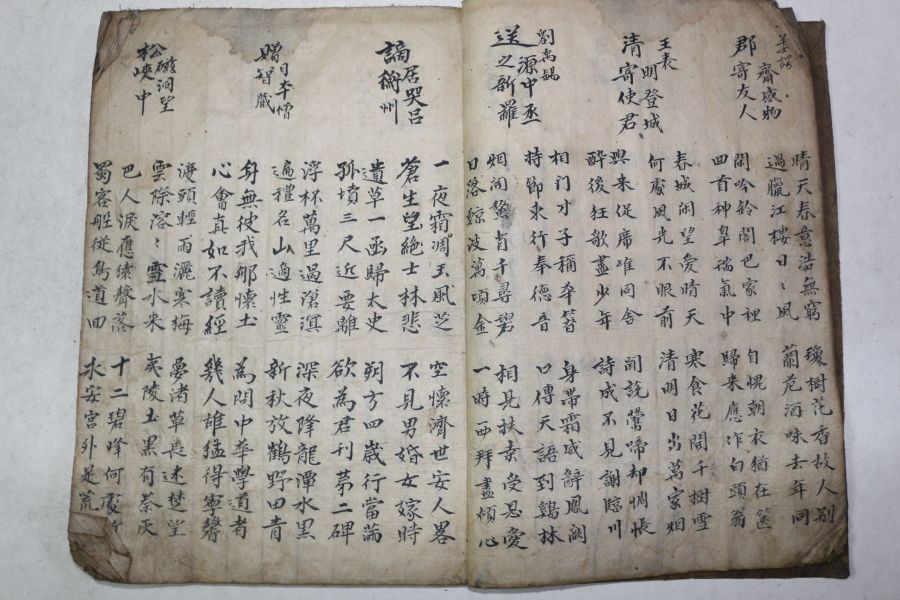 姜諤
郡齋感物
寄友人
晴天春意浩無窮
過臘江樓日〻風
瓊樹花香故人別
蘭卮酒味去年同
閑吟鈴閣巴家裡
回首神皐瑞氣中
自愧朝衣猶在篋
歸来應作白頭翁
王表
清明登城
寄使君
春城閑望愛晴天
何處風光不眼前
寒食花開千樹雪
清明日出萬家烟
興来促席唯同舍
醉後狂歌盡少年
聞說鶯啼却惆悵
詩成不見謝臨川
劉禹錫
送源中丞
之新羅
相门才子稱華簪
持節東行奉德音
身帶霜威辭鳳闕
口傳天語到鷄林
烟間鰲背千尋碧
日落鯨波萬頃金
相見扶桑受恩愛
一時西拜盡傾心
謫居哭呂
衡州
一夜霜凋玉風芝
蒼生望絶士林悲
空懷濟世安人畧
不見男婚女嫁時
遺草一函歸太史
孤墳三尺近要離
朔方四歲行當滿
欲為君刊第二碑
贈日本僧
智藏
浮杯萬里過滄溟
遍禮名山適性靈
深夜降龍潭水黑
新秋放鶴野田青
身無彼我那懷土
心會真如不讀經
為問中華學道者
幾人雄猛得寧馨
松滋洞望
峽中
渡頭輕雨灑寒梅
雲際溶〻雪水来
夢渚草長迷楚望
夷陵土黑有秦灰
巴人淚應猿聲落
蜀客船從鳥道回
十二碧峰何處所
永安宮外是荒